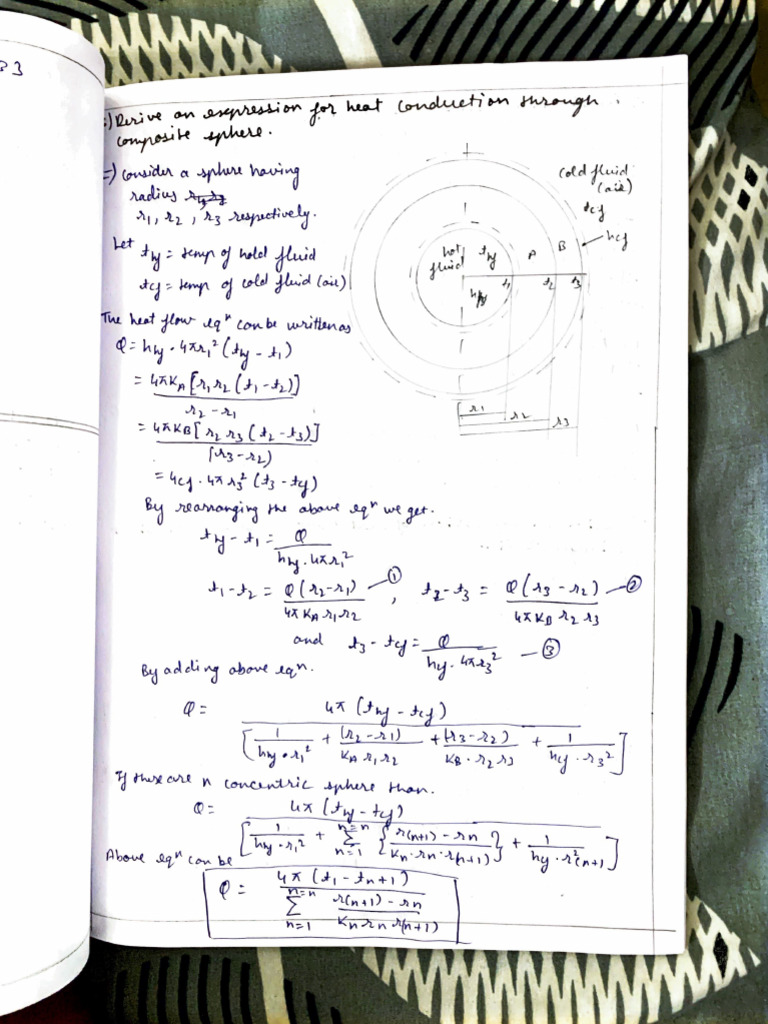 83
:) Derive an expression for heat conduction through
composite sphere.
=) Consider a sphere having
radius
r1, r2, r3 respectively.
Let thf = temp of hold fluid
tcf = temp of cold fluid (air)
cold fluid
(air)
tcf
hcf
hot
fluid
thf
A
B
hhf
r1
t2
r3
r1
r2
r3
The heat flow eqn can be written as
Q = hhf · 4πr1² (thf - t1)
= 4πKA [r1 r2 (t1 - t2)] / r2 - r1
= 4πKB [r2 r3 (t2 - t3)] / (r3 - r2)
= hcf · 4πr3² (t3 - tcf)
By rearranging the above eqn we get.
thf - t1 = Q / hhf · 4πr1²
t1 - t2 = Q(r2 - r1) / 4πKA r1 r2 — ① , t2 - t3 = Q(r3 - r2) / 4πKB r2 r3 — ②
and t3 - tcf = Q / hcf · 4πr3² — ③
By adding above eqn.
Q = 4π (thf - tcf) / [1 / hhf · r1² + (r2 - r1) / KA r1 r2 + (r3 - r2) / KB · r2 r3 + 1 / hcf · r3²]
If there are n concentric sphere than.
Q = 4π (thf - tcf) / [1 / hhf · r1² + Σ n=1 n=n {r(n+1) - rn / Kn · rn · r(n+1)} + 1 / hcf · r²(n+1)]
Above eqn can be
Q = 4π (t1 - tn+1) / Σ n=1 n=n r(n+1) - rn / Kn rn r(n+1)